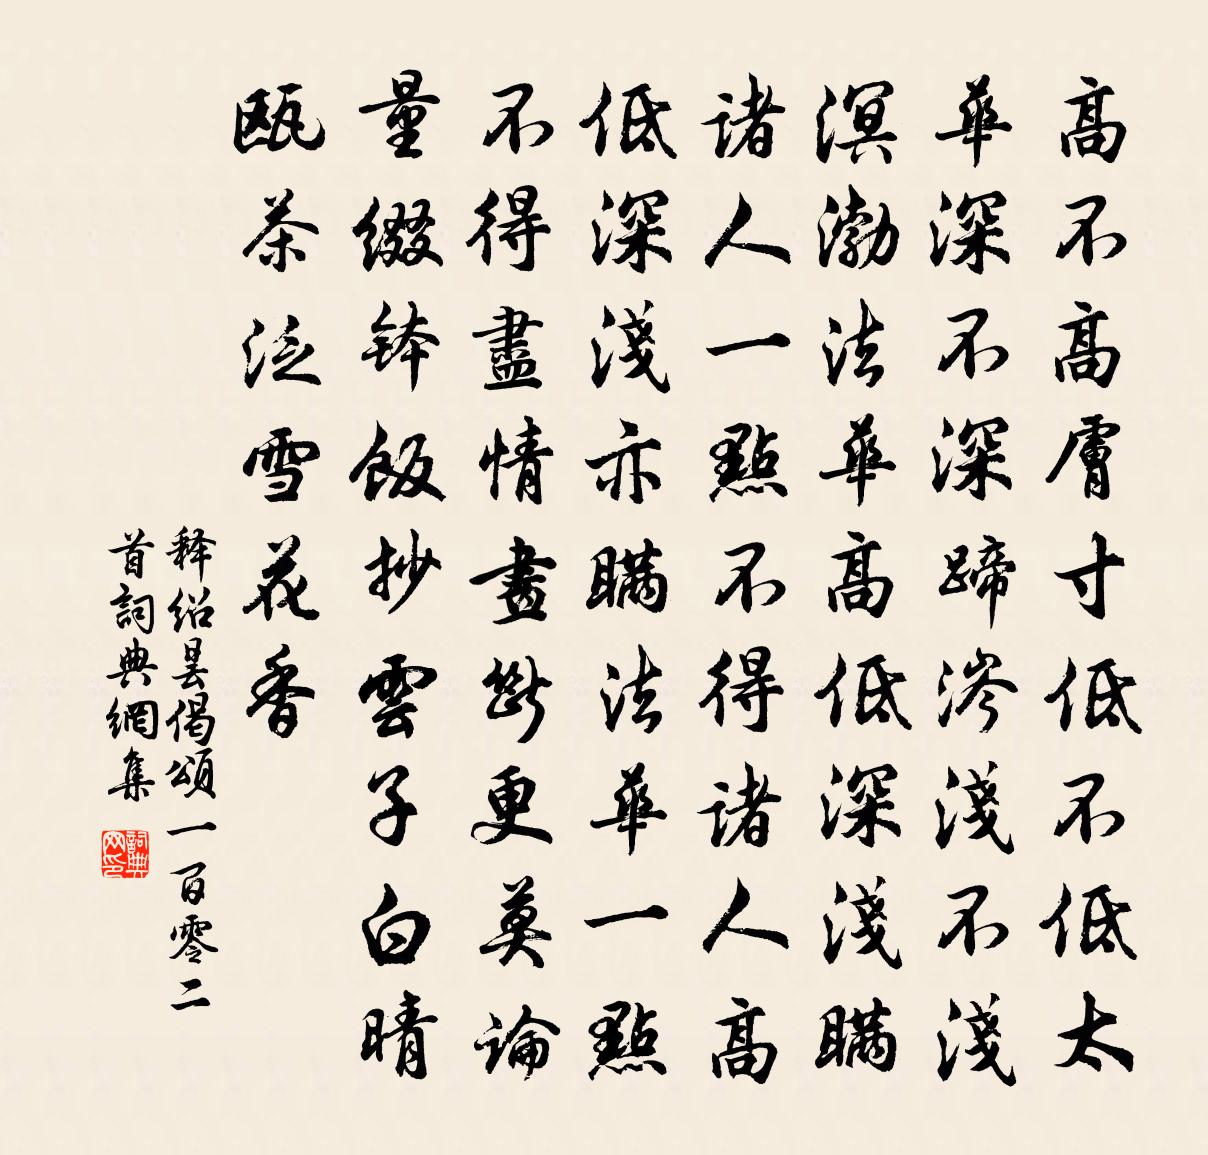 高不高高膚寸低不低太
華深不深蹄涔淺不淺
溟渤法華高低深淺瞞
諸人一點不得諸人高
低深淺亦瞞法華一點
不得盡情畫斷更莫論
量綴鉢飯抄雲子白晴
甌茶泛雪花香
释绍昙偈頌一百零二
首詞典網集
詞典网印